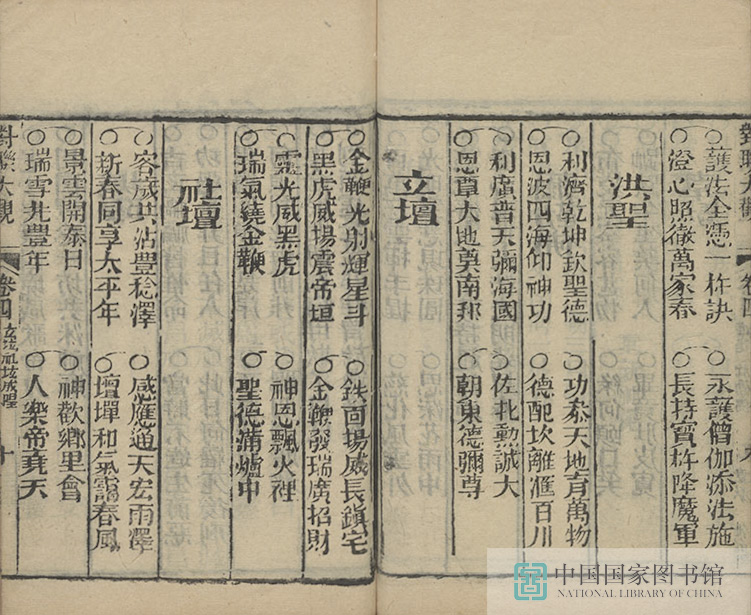 ○護法全憑一杵訣
○澄心照徹萬家春
○永護僧伽添法施
○長持寶杵降魔軍
洪聖
○利濟乾坤欽聖德
○恩波四海仰神功
○功參天地育萬物
○德配坎離滙百川
○利廣普天彌海國
○恩覃大地奠南邦
○佐北勳誠大
○朝東德彌尊
立壇
○金鞭光射輝星斗
○黑虎威揚震帝垣
○鉄面揚威長鎮宅
○金鞭發瑞廣招財
○靈光威黑虎
○瑞氣繞金鞭
○神恩飄火裡
○聖德滿爐中
社壇
○客歲共沾豊稔澤
○新春同享太平年
○感應通天宏雨澤
○壇墠和氣靄春風
○景雲開泰日
○瑞雪兆豐年
○神歡鄉里會
○人樂帝堯天
對聯大觀
卷四
十
中国国家图书馆
NATIONAL LIBRARY OF CHINA